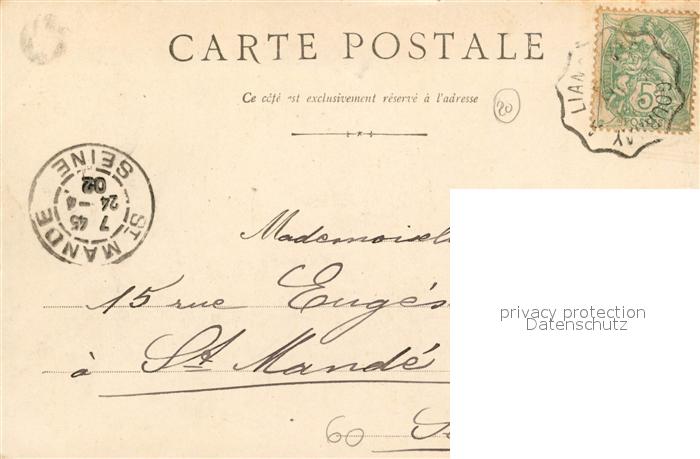 CARTE POSTALE
Ce côté est exclusivement réservé à l'adresse
20
LIAN
GOURNAY
5
ST MANDE
7 45
24 -4
02
SEINE
Mademoisel
15 rue Eugé
à St Mandé
60
privacy protection
Datenschutz